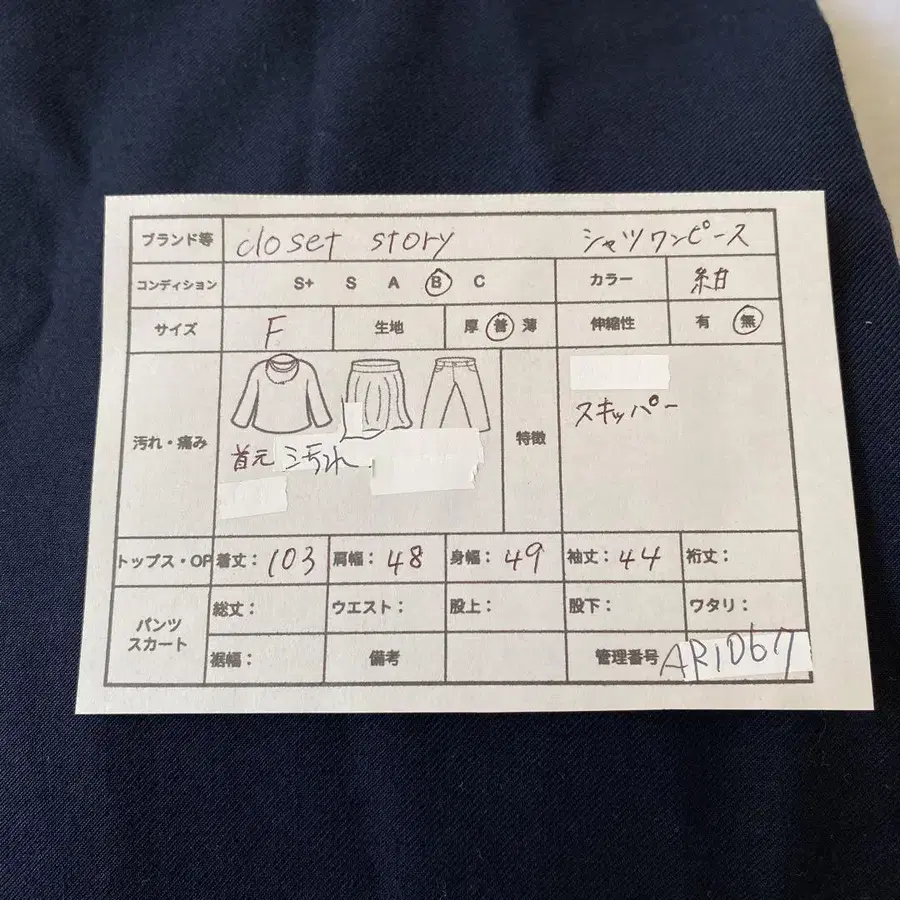 ブランド等 closet story シャツワンピース
コンディション S+ S A B C カラー 紺
サイズ F 生地 厚 普 薄 伸縮性 有 無
汚れ・痛み 首元 汚れ 特徴 スキッパー
トップス・OP 着丈：103 肩幅：48 身幅：49 袖丈：44 裄丈：
パンツ スカート 総丈： ウエスト： 股上： 股下： ワタリ：
裾幅： 備考 管理番号 AR1067